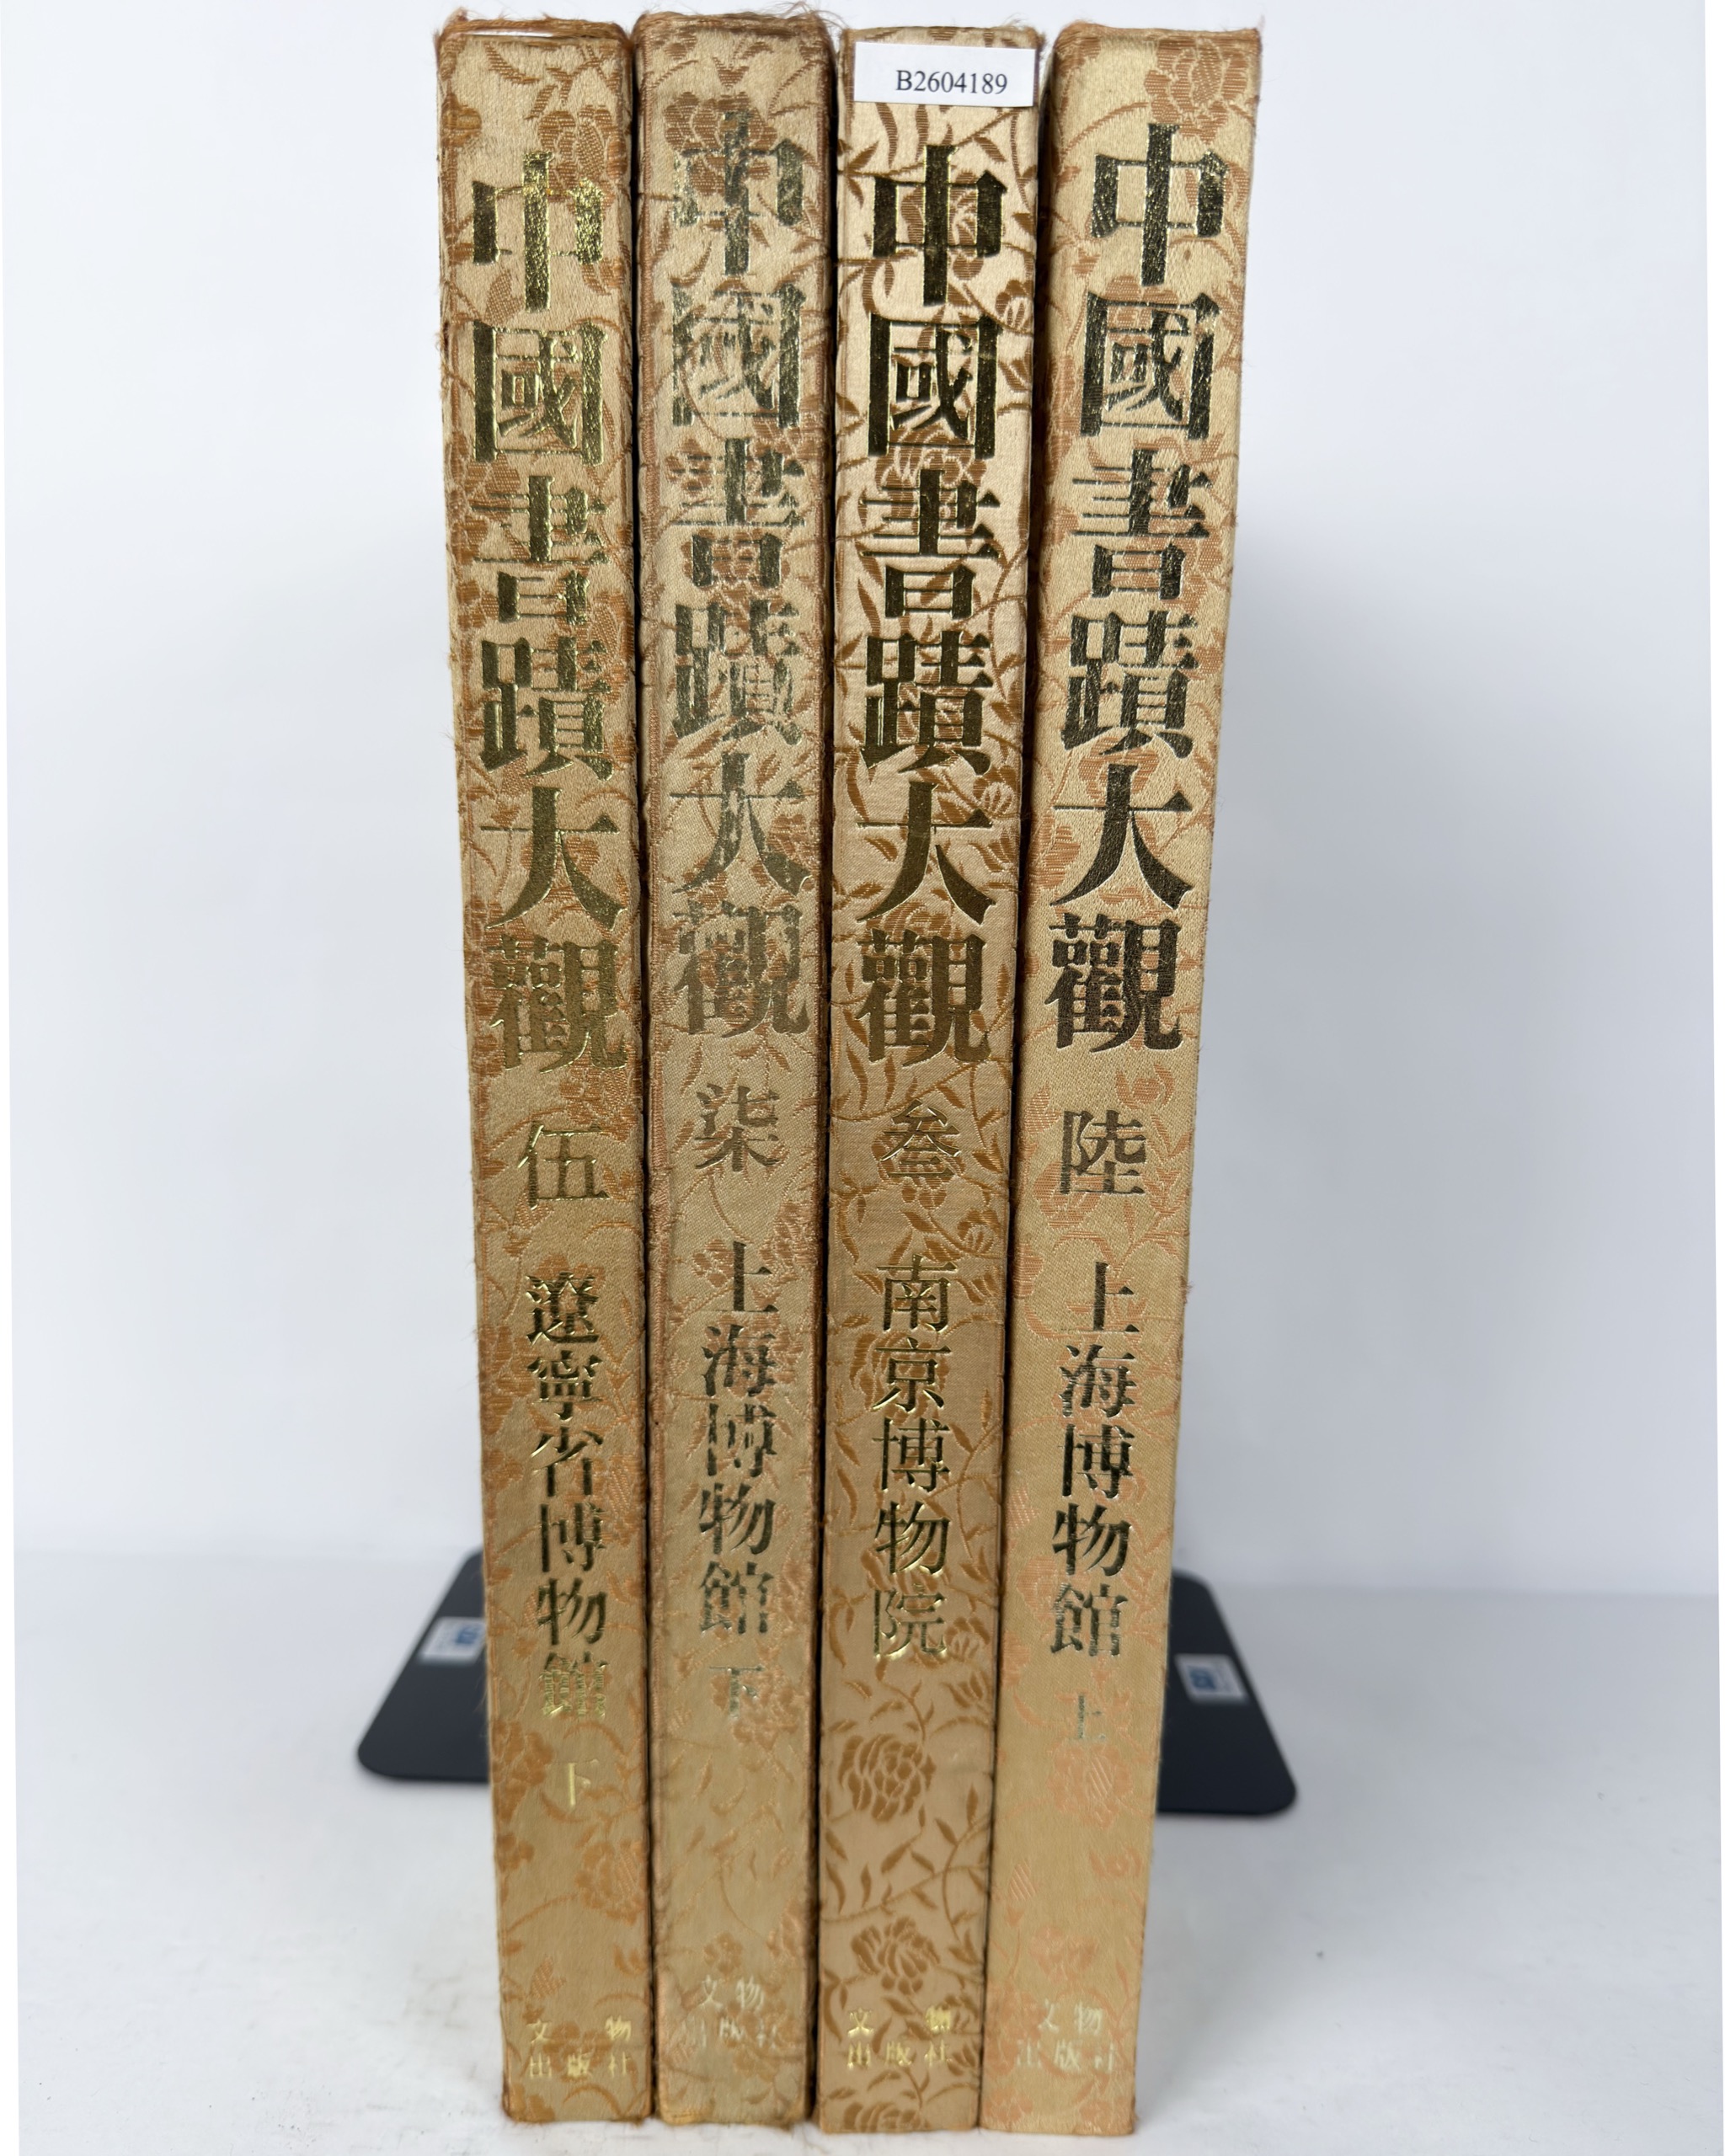 中國書蹟大觀 伍 遼寧省博物館 下
文物
出版社
中國書蹟大觀 柒 上海博物館 下
文物
出版社
B2604189
中國書蹟大觀 叁 南京博物院
文物
出版社
中國書蹟大觀 陸 上海博物館 上
文物
出版社